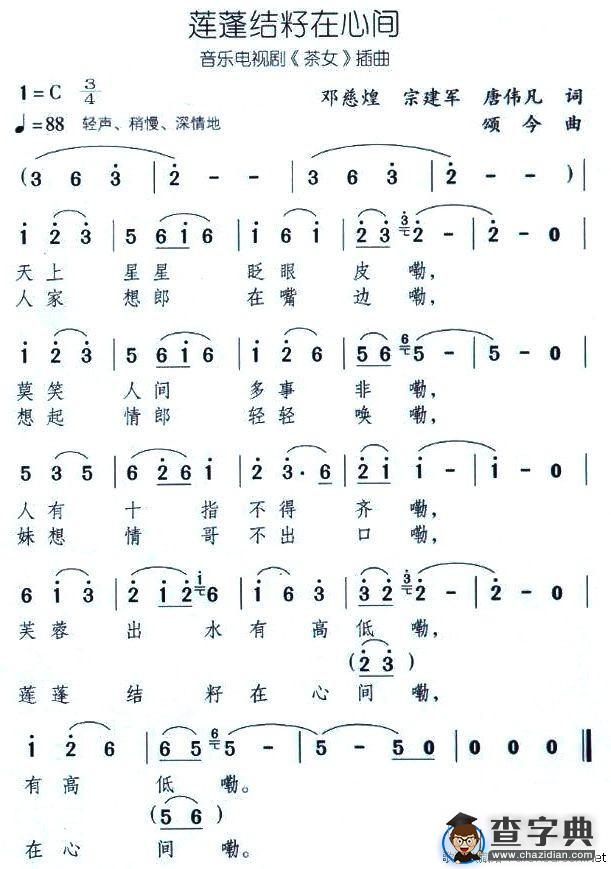 莲蓬结籽在心间
音乐电视剧《茶女》插曲
1=C 3/4
邓慈煌 宗建军 唐伟凡 词
♩=88 轻声、稍慢、深情地
颂今 曲
(3 6 3 | 2 - - | 3 6 3 | 2 - - ) |
1 2 3 | 5 6 1 6 | 1 6 1 | 2 3 3 2 - | 2 - 0 |
天上 星星 眨眼 皮 嘞,
人家 想郎 在嘴 边 嘞,
1 2 3 | 5 6 1 6 | 1 2 6 | 5 6 6 5 - | 5 - 0 |
莫笑 人间 多事 非 嘞,
想起 情郎 轻轻 唤 嘞,
5 3 5 | 6 2 6 1 | 2 3 · 6 | 2 1 1 - | 1 - 0 |
人有 十 指不得 齐 嘞,
妹想 情 哥不出 口 嘞,
6 1 3 | 2 1 2 1 6 | 1 6 3 | 2 3 3 2 - | 2 - 0 |
芙蓉 出 水有高低 嘞,
(2 3)
莲蓬 结 籽在心间 嘞,
1 2 6 | 6 5 6 5 - | 5 - 5 0 | 0 0 0 ‖
有高 低 嘞。
(5 6)
在心 间 嘞。
查字典
www.chazidian.com